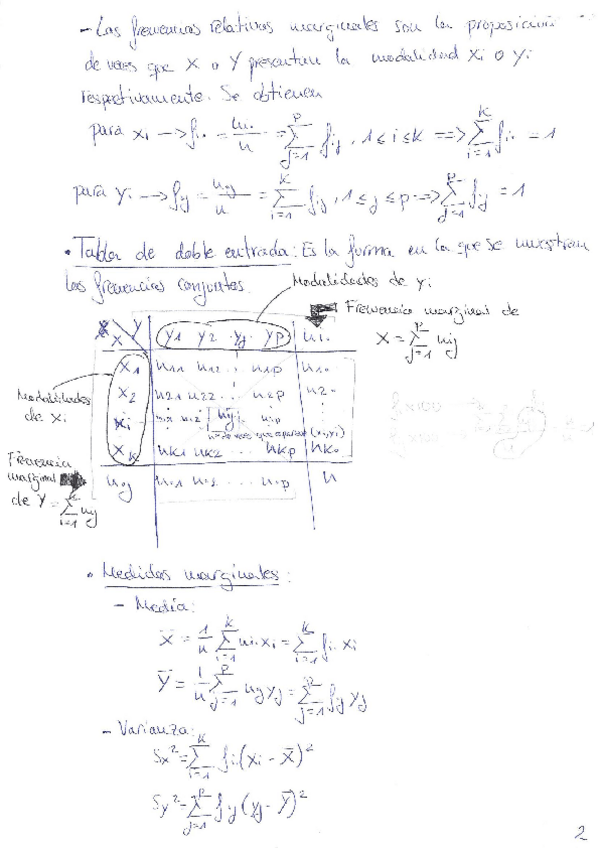 - Las frecuencias relativas marginales son la proposición
de veces que X o Y presentan la modalidad xi o yi
respectivamente. Se obtienen
para xi → fi. = ni./n = Σ(j=1→p) fij, 1 ≤ i ≤ k ⇒ Σ(i=1→k) fi. = 1
para yi → f.j = n.j/n = Σ(i=1→k) fij, 1 ≤ j ≤ p ⇒ Σ(j=1→p) f.j = 1
• Tabla de doble entrada: Es la forma en la que se muestran
las frecuencias conjuntas.
Modalidades de yi
Frecuencia marginal de
X = Σ(j=1→p) nij
X Y y1 y2 ·· yj ·· yp ni.
x1 n11 n12 ... n1p n1.
x2 n21 n22 ... n2p n2.
Modalidades
de xi
xi ni1 ni2 nij nip
nº de veces que aparecen (xi, yi)
xk nk1 nk2 ... nkp nk.
Frecuencia
marginal
de Y = Σ(i=1→k) nij
n.j n.1 n.2 ... n.p n
• Medidas marginales:
- Media:
X̄ = 1/n Σ(i=1→k) ni. xi = Σ(i=1→k) fi. xi
Ȳ = 1/n Σ(j=1→p) n.j yj = Σ(j=1→p) f.j yj
- Varianza:
Sx² = Σ(i=1→k) fi. (xi - X̄)²
Sy² = Σ(j=1→p) f.j (yj - Ȳ)²
2